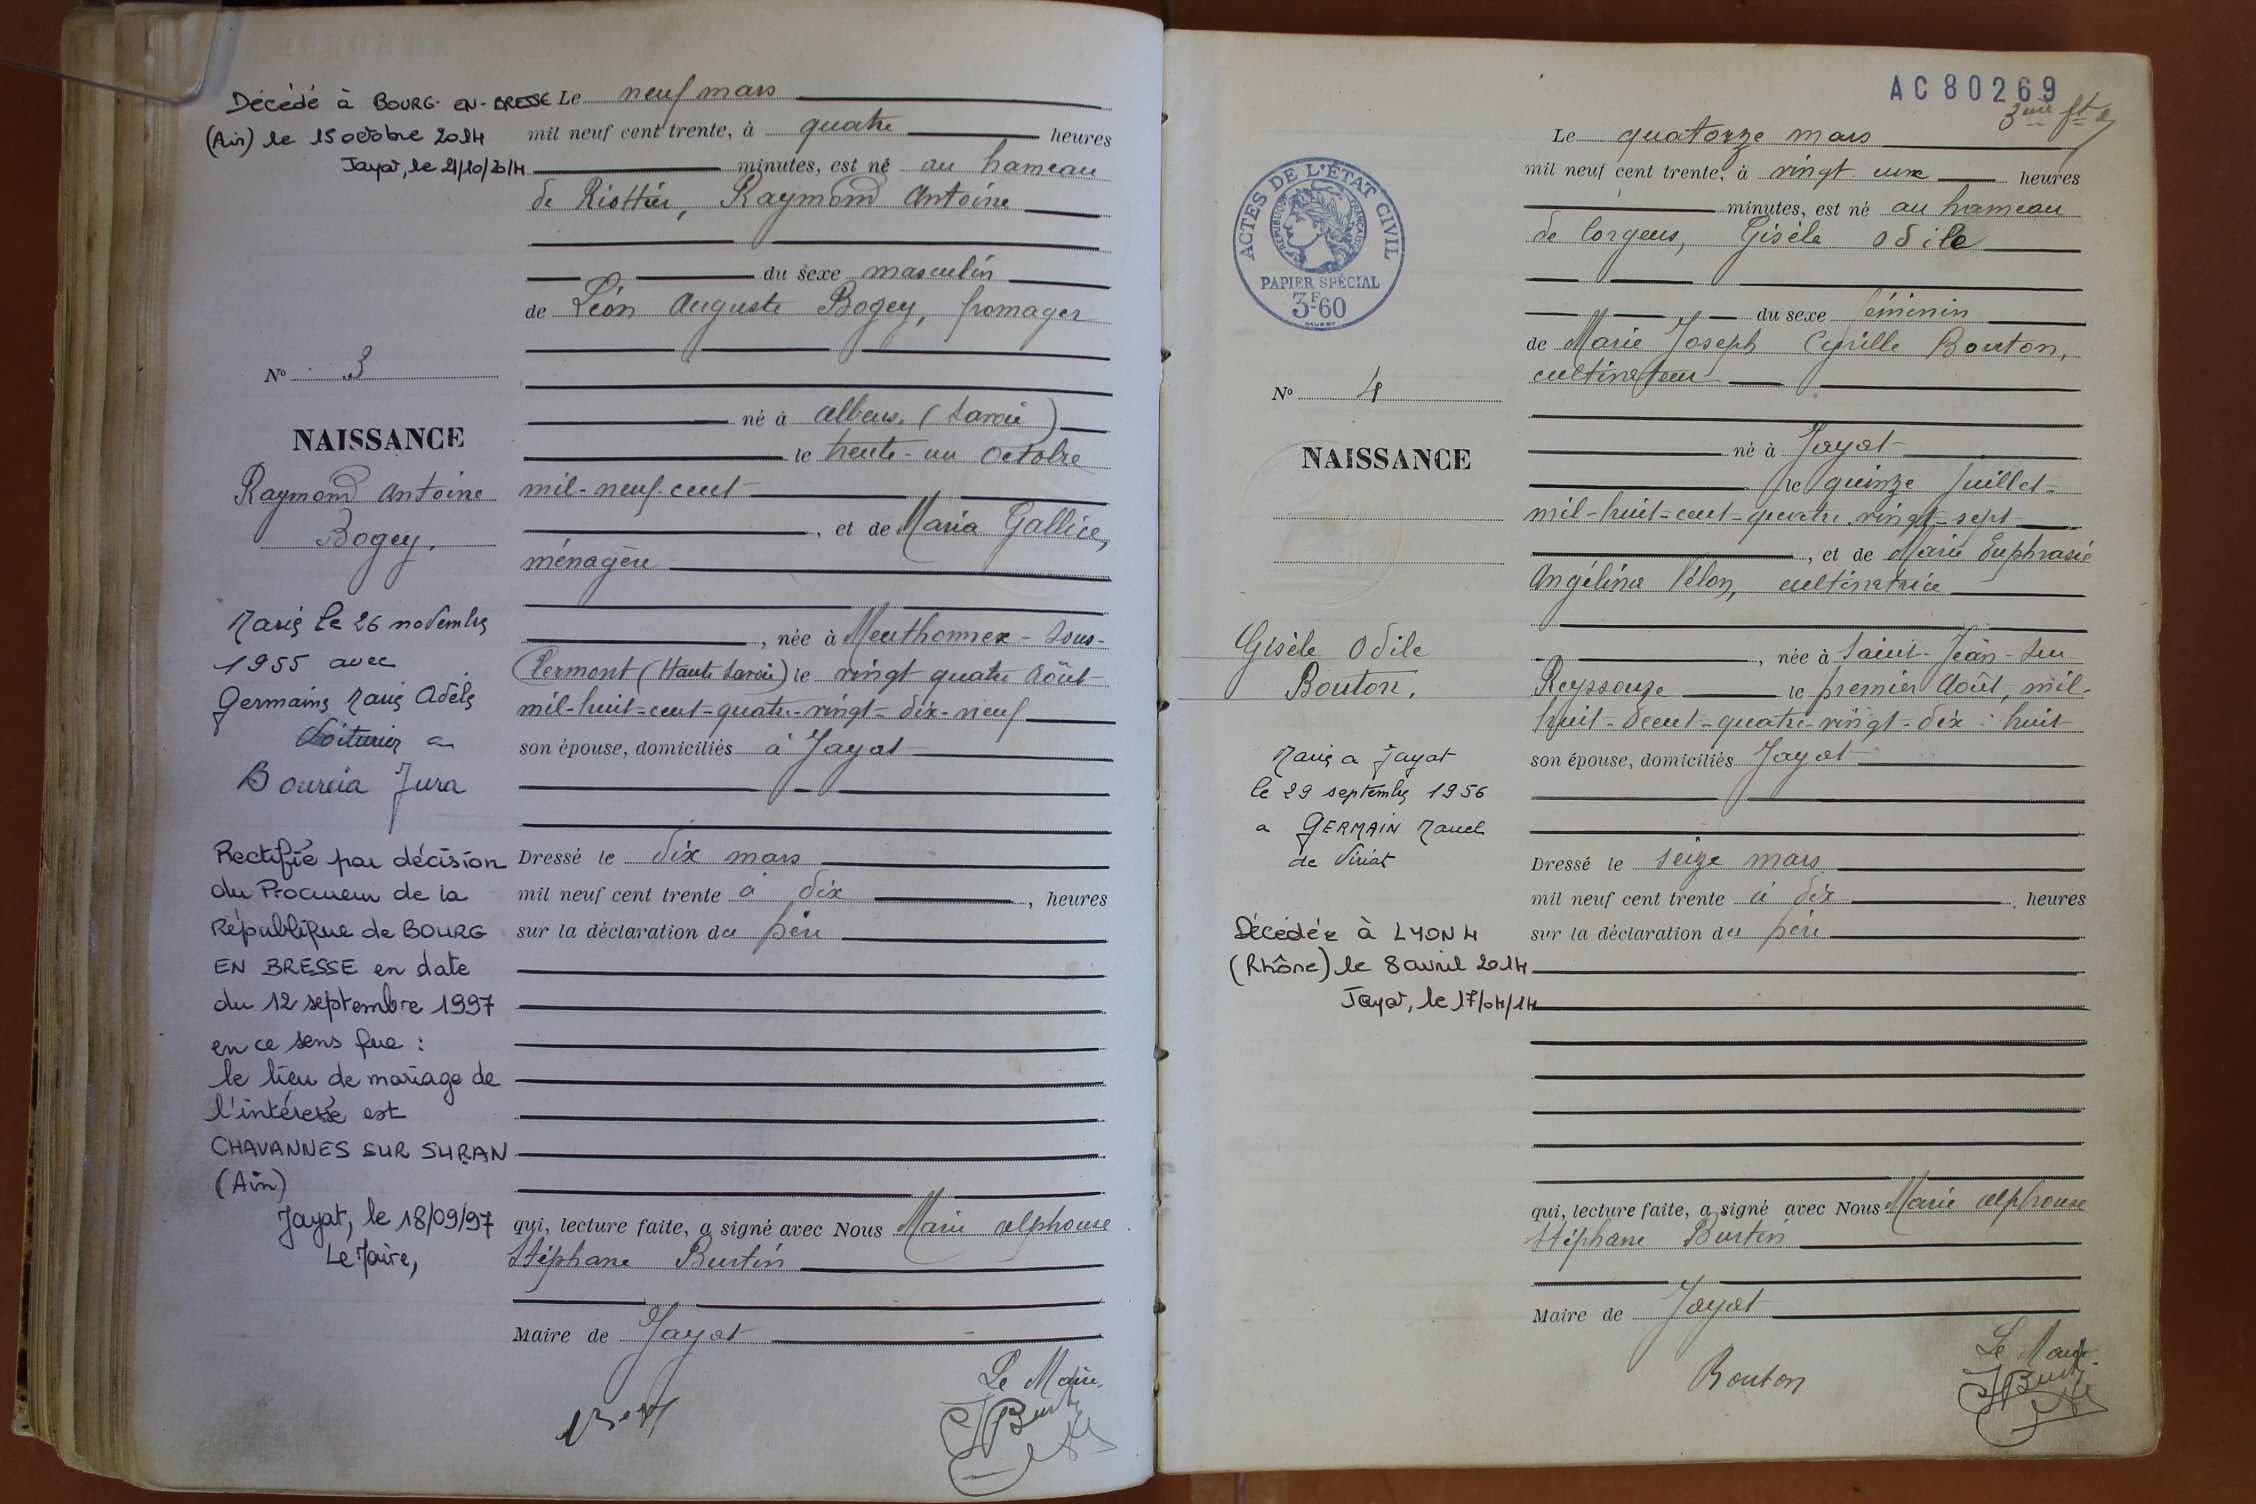 Décédé à BOURG-EN-BRESSE
(Ain) le 15 octobre 2014
Jayat, le 21/10/2014
N° 3
NAISSANCE
Raymond Antoine
Bogey.
Marié le 26 novembre
1955 avec
Germaine Marie Adèle
Voiturier a
Bourcia Jura
Rectifié par décision
du Procureur de la
République de BOURG
EN BRESSE en date
du 12 septembre 1997
en ce sens que :
le lieu de mariage de
l'intéressé est
CHAVANNES SUR SURAN
(Ain)
Jayat, le 18/09/97
Le Maire,
Le neuf mars
mil neuf cent trente, à quatre heures
minutes, est né au hameau
de Riottier, Raymond Antoine
du sexe masculin
de Léon Auguste Bogey, fromager
né à Albens, (Savoie)
le trente-un Octobre
mil-neuf-cent
, et de Maria Gallice,
ménagère
, née à Menthonnex-sous-
Clermont (Haute Savoie) le vingt quatre Août
mil-huit-cent-quatre-vingt-dix-neuf
son épouse, domiciliés à Jayat
Dressé le dix mars
mil neuf cent trente à dix , heures
sur la déclaration du père
qui, lecture faite, a signé avec Nous Marie Alphonse
Stéphane Burtin
Maire de Jayat
Le Maire,
AC80269
3me ft
ACTES DE L'ÉTAT CIVIL
RÉPUBLIQUE FRANÇAISE
PAPIER SPÉCIAL
3F60
N° 4
NAISSANCE
Gisèle Odile
Bouton.
Marié a Jayat
le 29 septembre 1956
a GERMAIN Marcel
de Viriat
Décédée à LYON 4
(Rhône) le 8 avril 2014
Jayat, le 17/04/14
Le quatorze mars
mil neuf cent trente, à vingt une heures
minutes, est né au hameau
de Corgeus, Gisèle Odile
du sexe féminin
de Marie Joseph Cyrille Bouton,
cultivateur
né à Jayat
le quinze Juillet
mil-huit-cent-quatre-vingt-sept
, et de Marie Euphrasie
Angélina Pélon, cultivatrice
, née à Saint-Jean-sur-
Reyssouze le premier Août, mil-
huit-cent-quatre-vingt-dix-huit
son épouse, domiciliés Jayat
Dressé le seize mars
mil neuf cent trente à dix , heures
sur la déclaration du père
qui, lecture faite, a signé avec Nous Marie Alphonse
Stéphane Burtin
Maire de Jayat
Bouton
Le Maire